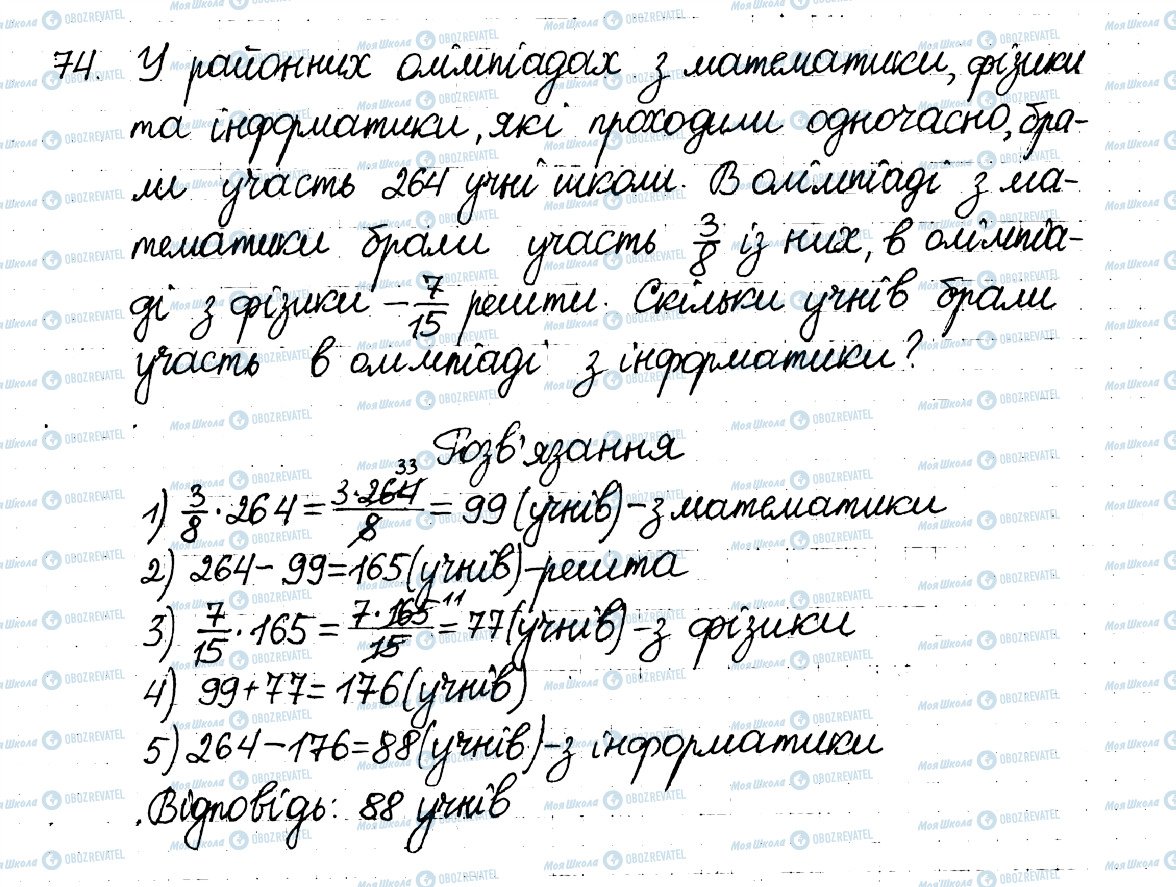 74. У районних олімпіадах з математики, фізики
та інформатики, які проходили одночасно, бра-
ли участь 264 учні школи. В олімпіаді з ма-
тематики брали участь 3/8 із них, в олімпіа-
ді з фізики – 7/15 решти. Скільки учнів брали
участь в олімпіаді з інформатики?
Розв'язання
1) 3/8 · 264 = 3·264/8 33 = 99 (учнів) – з математики
2) 264 – 99 = 165 (учнів) – решта
3) 7/15 · 165 = 7·165/15 11 = 77 (учнів) – з фізики
4) 99 + 77 = 176 (учнів)
5) 264 – 176 = 88 (учнів) – з інформатики
Відповідь: 88 учнів
Моя Школа OBOZREVATEL